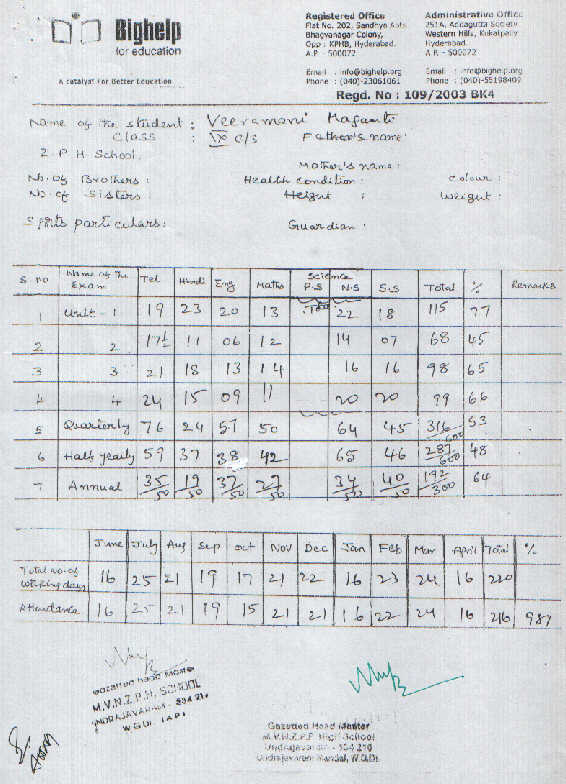 Bighelp
for education
A catalyst For Better Education
Registered Office
Flat No. 202, Sandhya Apts.
Bhagyanagar Colony,
Opp : KPHB, Hyderabad.
A.P. - 500072
Email : info@bighelp.org
Phone : (040)-23061061
Administrative Office
251A, Addagutta Society
Western Hills, Kukatpally
Hyderabad.
A.P. - 500072
Email : info@bighelp.org
Phone : (040)-55198409
Regd. No : 109/2003 BK4
Name of the student : Veeramani
Class : IX C/S Father's name:
Z.P.H. School. Mother's name :
No. of Brothers : Health Condition : Colour :
No. of Sisters : Height : Weight :
Sports particulars: Guardian :
S no Name of the Exam Tel Hindi Eng Maths Science P.S N.S S.S Total % Remarks
1 Unit - 1 19 23 20 13 22 18 115 77
2 2 17½ 11 06 12 14 07 68 45
3 3 21 18 13 14 16 16 98 65
4 4 24 15 09 11 20 20 99 66
5 Quarterly 76 24 57 50 64 45 316/600 53
6 Half yearly 59 37 38 42 65 46 287/600 48
7 Annual 35/50 19/50 37/50 27/50 34/50 40/50 192/300 64
June July Aug Sep Oct Nov Dec Jan Feb Mar April Total %
Total no. of working days 16 25 21 19 17 21 22 16 23 24 16 220
Attendance 16 25 21 19 15 21 21 16 22 24 16 216 98%
Gazetted Head Master
M.V.N.Z.P.H. SCHOOL
UNDRAJAVARAM - 534 216
W.G.Dt. (A.P.)
Gazetted Head Master
M.V.N.Z.P.P. High School
Undrajavaram - 534 216
Undrajavaram Mandal, W.G.Dt.